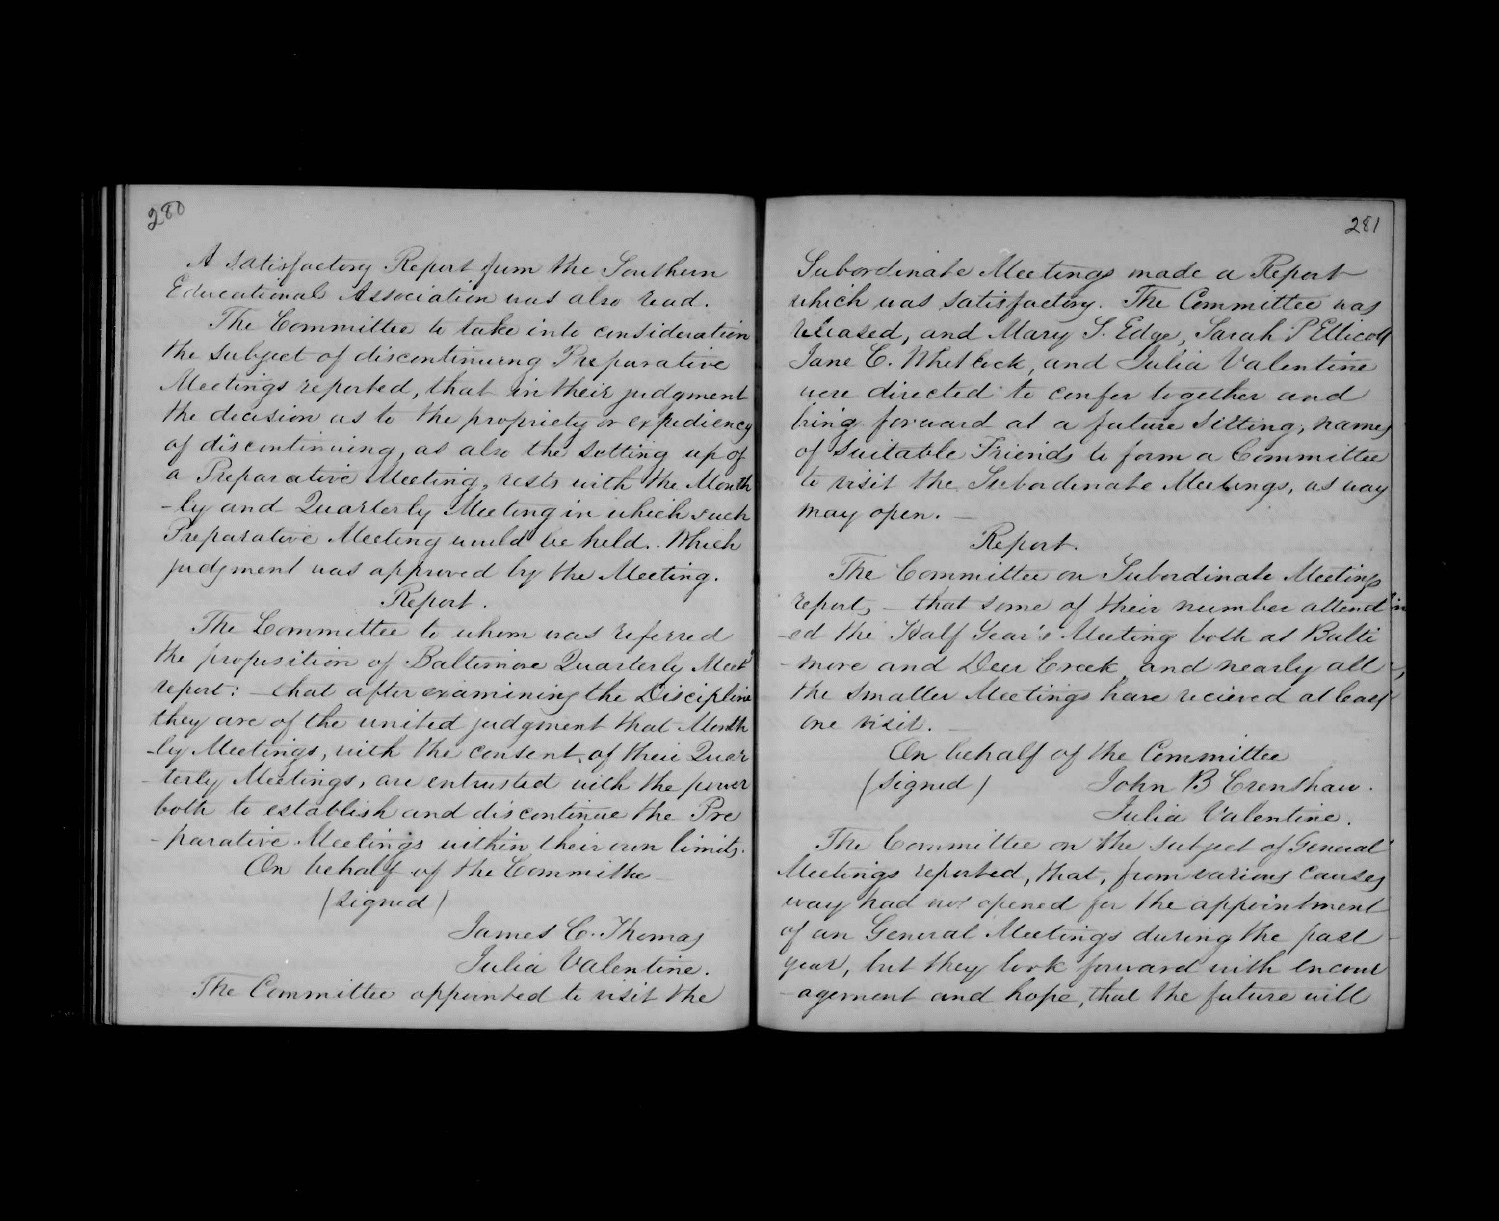 280
A satisfactory Report from the Southern
Educational Association was also read.
The Committee to take into consideration
the subject of discontinuing Preparative
Meetings reported, that in their judgment
the decision as to the propriety or expediency
of discontinuing, as also the setting up of
a Preparative Meeting, rests with the Month
-ly and Quarterly Meeting in which such
Preparative Meeting would be held. Which
judgment was approved by the Meeting.
Report.
The Committee to whom was referred
the proposition of Baltimore Quarterly Meet
report: - that after examining the Discipline
they are of the united judgment that Month
-ly Meetings, with the consent of their Quar
-terly Meetings, are entrusted with the power
both to establish and discontinue the Pre
-parative Meetings within their own limits.
On behalf of the Committee
(signed)
James C. Thomas
Julia Valentine.
The Committee appointed to visit the
281
Subordinate Meetings made a Report
which was satisfactory. The Committee was
released, and Mary S. Edge, Sarah P Ellicott
Jane C. Whitlock, and Julia Valentine
were directed to confer together and
bring forward at a future sitting, names
of suitable Friends to form a Committee
to visit the Subordinate Meetings, as way
may open. -
Report.
The Committee on Subordinate Meetings
report, - that some of their number attend
-ed the Half Year's Meeting both at Balti
-more and Deer Creek, and nearly all
the smaller Meetings have recieved at least
one visit. -
On behalf of the Committee
(signed) John B Crenshaw.
Julia Valentine.
The Committee on the subject of General
Meetings reported, that, from various causes
way had not opened for the appointment
of an General Meetings during the past
year, but they look forward with encour
-agement and hope, that the future will